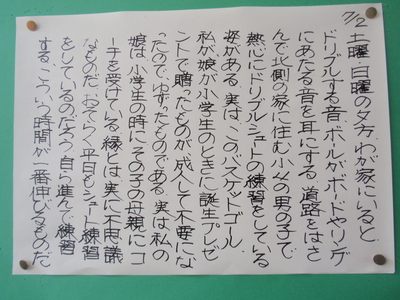 7/2
土曜・日曜の夕方、わが家にいると、
ドリブルする音、ボールがボードやリング
にあたる音を耳にする。道路をはさ
んで北側の家に住む小6の男の子で
熱心にドリブル、シュートの練習をしている
姿がある。実は、このバスケットゴール、
私が娘が小学生のときに誕生プレゼ
ントで贈ったものが成人して不要にな
ったので、ゆずったものである。実は私の
娘は小学生の時にその子の母親にコ
ーチを受けている。縁とは実に不思議
なものだ。おそらく平日もシュート練習
をしているのだろう。自ら進んで練習
する。こういう時間が一番伸びるものだ